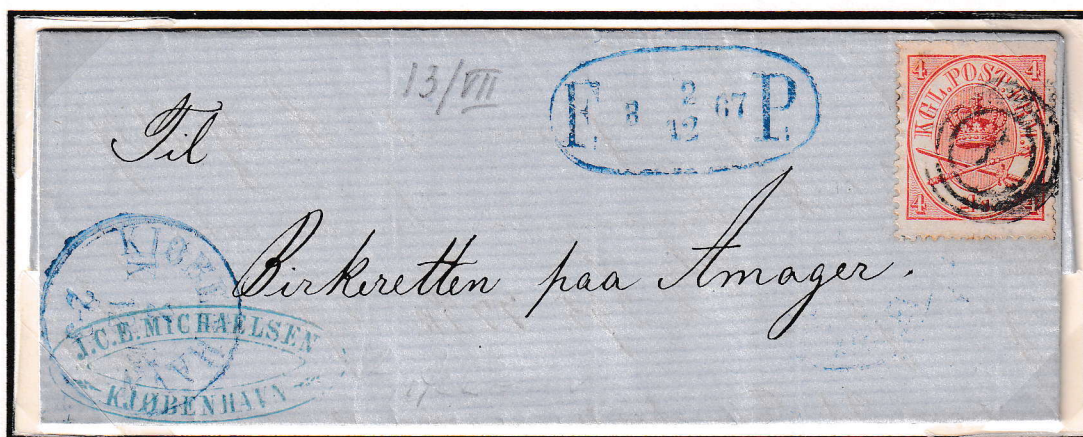 13/VII
F. 8 2/12 67 P.
4 KGL. POST FRM. 4
1
4 4
Til
Birkeretten paa Amager.
KJØBE
J.C.E. MICHAELSEN
KJØBENHAVN